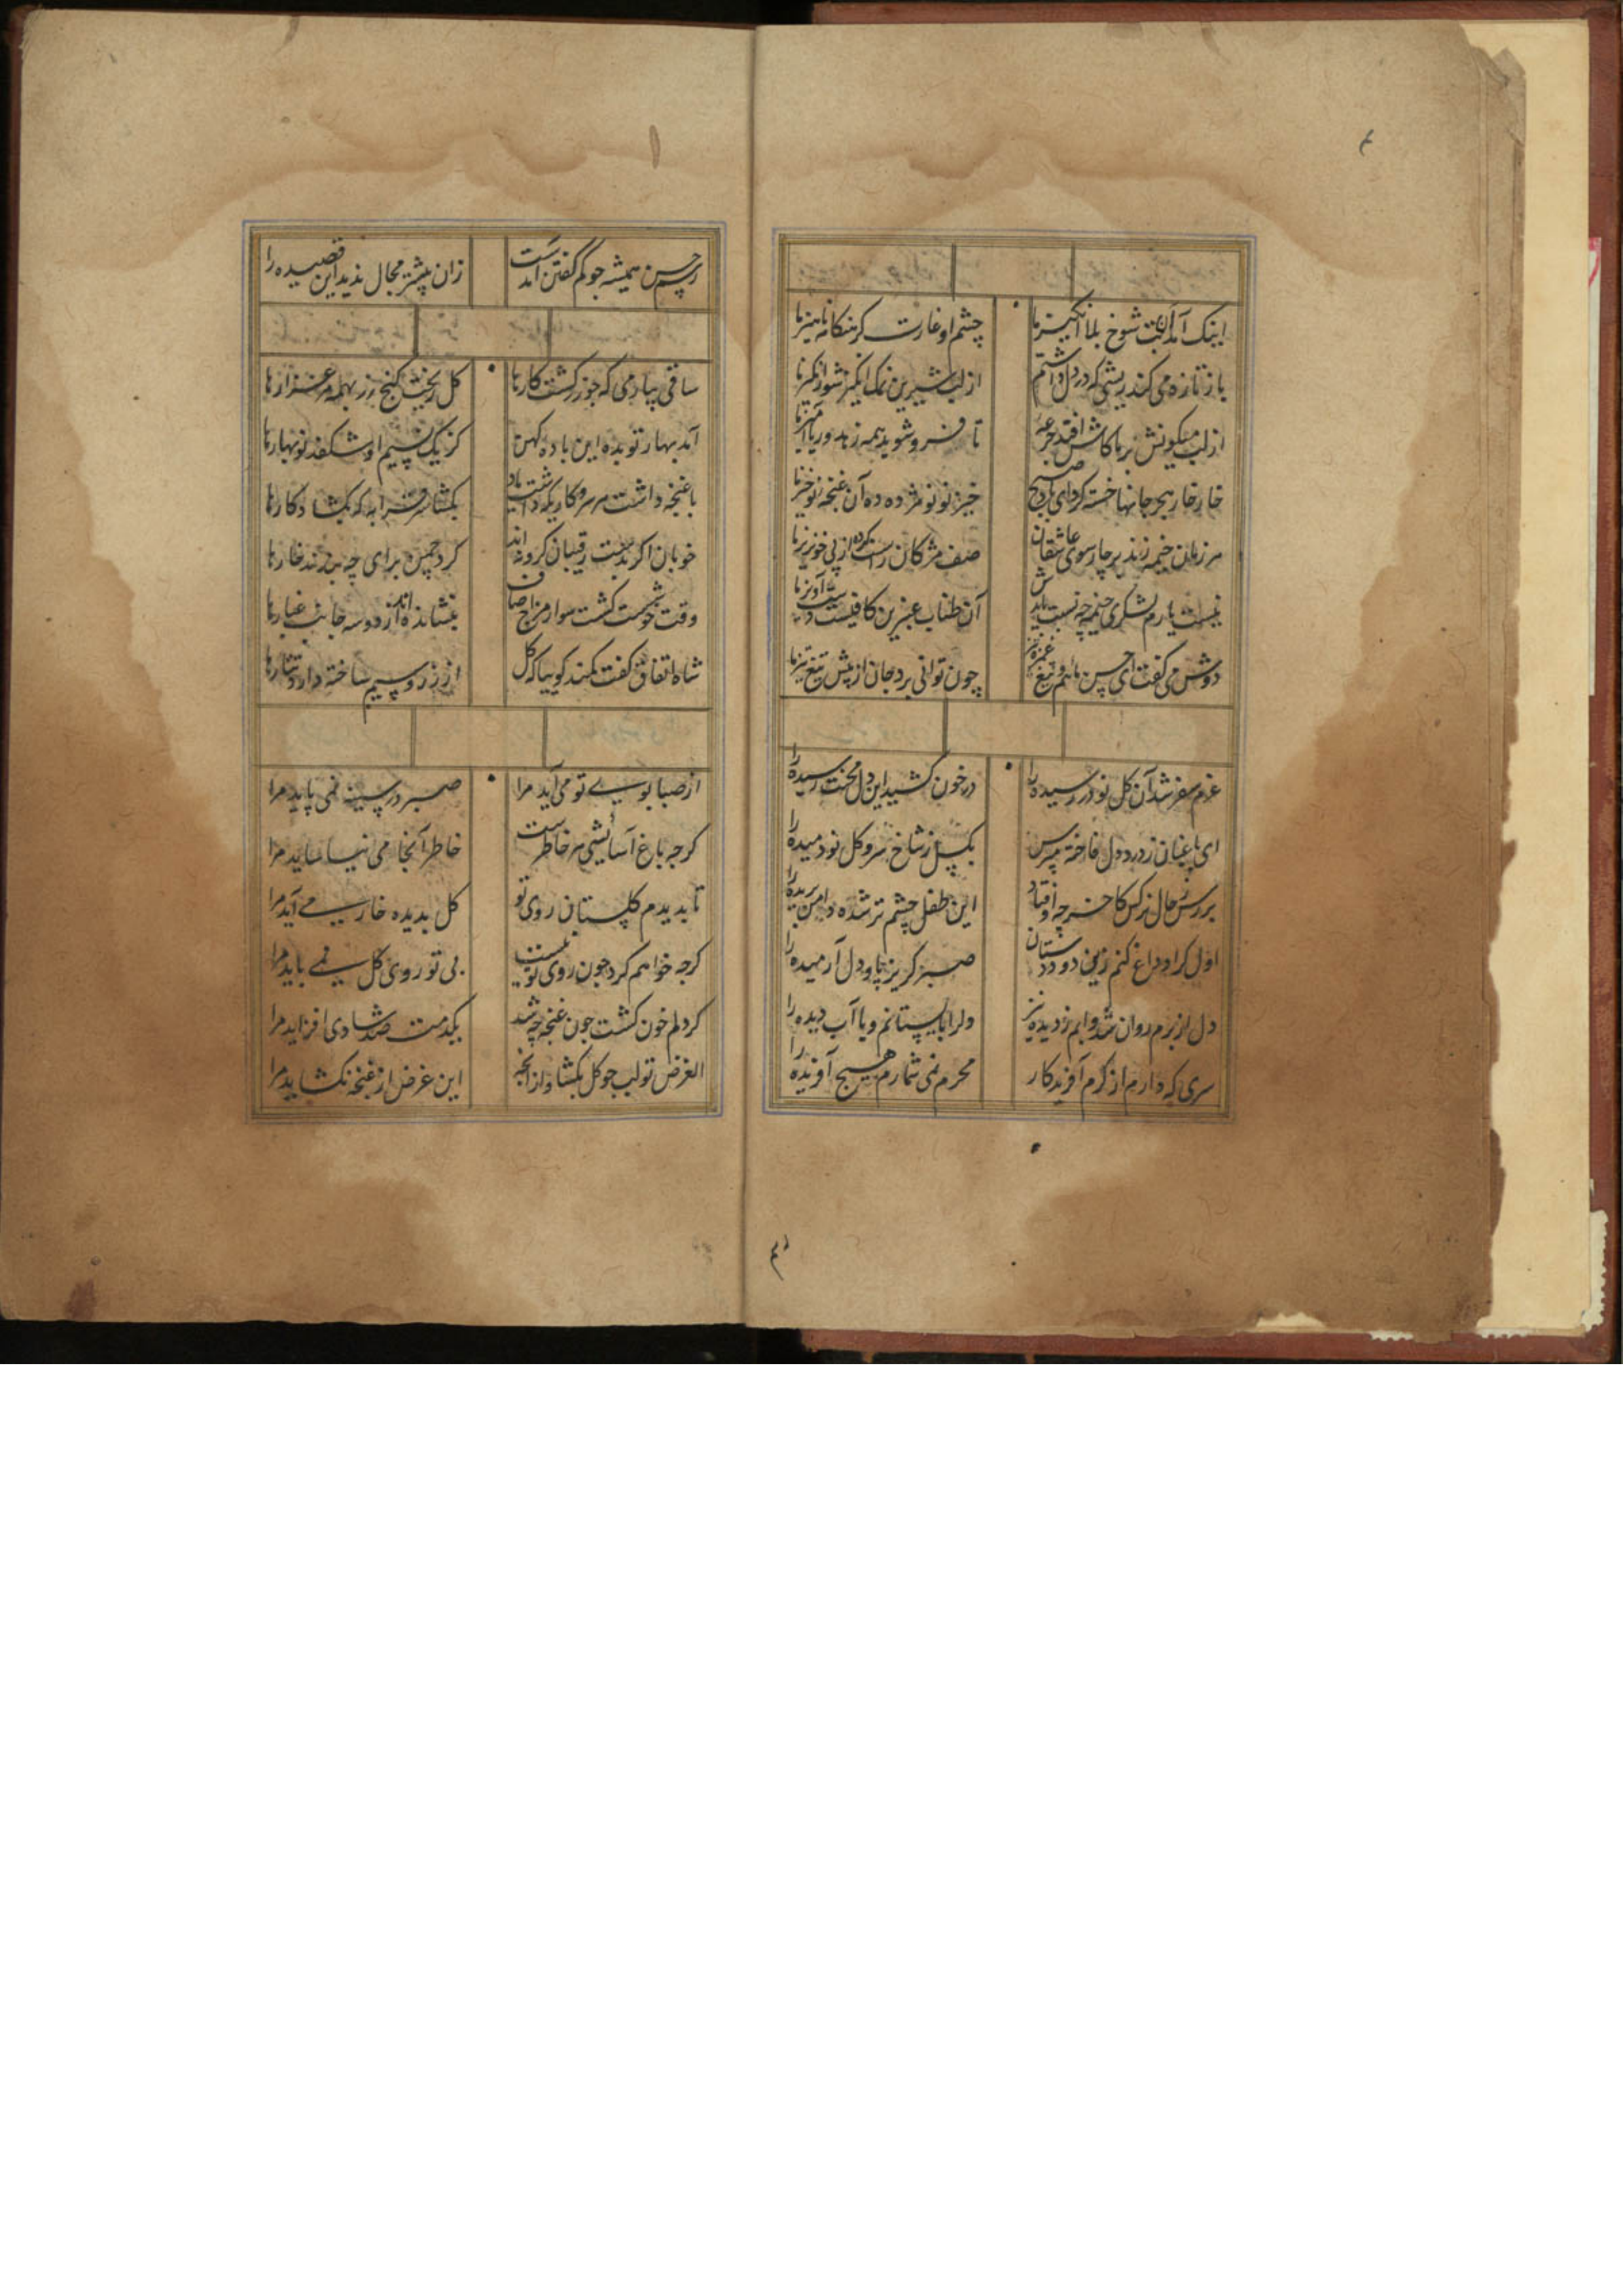 ۴
اینک آمد آن بت شوخ بلا انگیز ما چشم او غارت کر هنکامه پرهیز ما
باز تازه می کند ریشی که در دل داشتم از لب شیرین نمک انکیز شور انکیز ما
از لب میکونش بر ما کاش افتد جرعه تا فرو شوید همه زهد و ریا آمیز ما
خار خار هجر جانها خسته کرد ای باد صبح خیز نو نو مژده ده آن غنجه نوخیز ما
هر زمان خیمه زند بر چار سوی عاشقان صف مژکان راست کرده از پی خونریز ما
نیست یارم لشکری خیمه چه نسبت بایدش آن طناب عنبرین کافیست دست آویز ما
دوش می کفت ای حسن با هم و تیغ غمزه تیز چون توانی برد جان از پیش تیغ تیز ما
عزم سفر شد آن کل نو در رسیده را در خون کشید این دل محنت رسیده را
ای باغبان ز درد دل فاخته مپرس بکسل ز شاخ سرو کل نودمیده را
بررس ز حال نرکس کاخر چه اوفتاد این طفل چشم تر شده دامن بریده را
اول کرا وداع کنم زین دو دوستان صبر کریز پا و دل آرمیده را
دل از برم روان شد و آبم ز دیده نیز دل را باستانم و یا آب دیده را
سری که دارم از کرم آفریدکار محرم نمی شمارم هیچ آفریده را
رسم حسن همیشه جو کم کفتن آمدست زان بیشتر مجال ندید این قصیده را
ساقی بیار می که جو زر کشت کارها کل ریخت کنج زر بهمه مرغزارها
آمد بهار تو بده این باده کهن کز یک نسیم او شکفد نوبهارها
با غنجه داشت هر سر و کاریکه داشت باد بکشا سر قرابه که بکشاد کارها
خوبان اکر بدست رقیبان کرو نه اند کرد جمن برای چه بر زند خارها
وقت خوشست کشت سوار مزاج صاف بنشانده اند از دو سه جانب غبارها
شاه اتفاق کفت کند کو بیا که کل از زر و سیم ساخته دارد نثارها
از صبا بوی تو می آید مرا صبر در سینه نمی پاید مرا
کرجه باغ آسایشی هر خاطرست خاطر آنجا می نیاساید مرا
تا بدیدم کلستان روی تو کل بدیده خار می آید مرا
کرجه خواهم کرد جون روی تو نیست بی تو روی کل نمی باید مرا
کر دلم خون کشت جون غنجه چه شد یکدمت صد شادی افزاید مرا
الغرض تو لب جو کل بکشا و از آنجه این غرض از غنجه نکشاید مرا